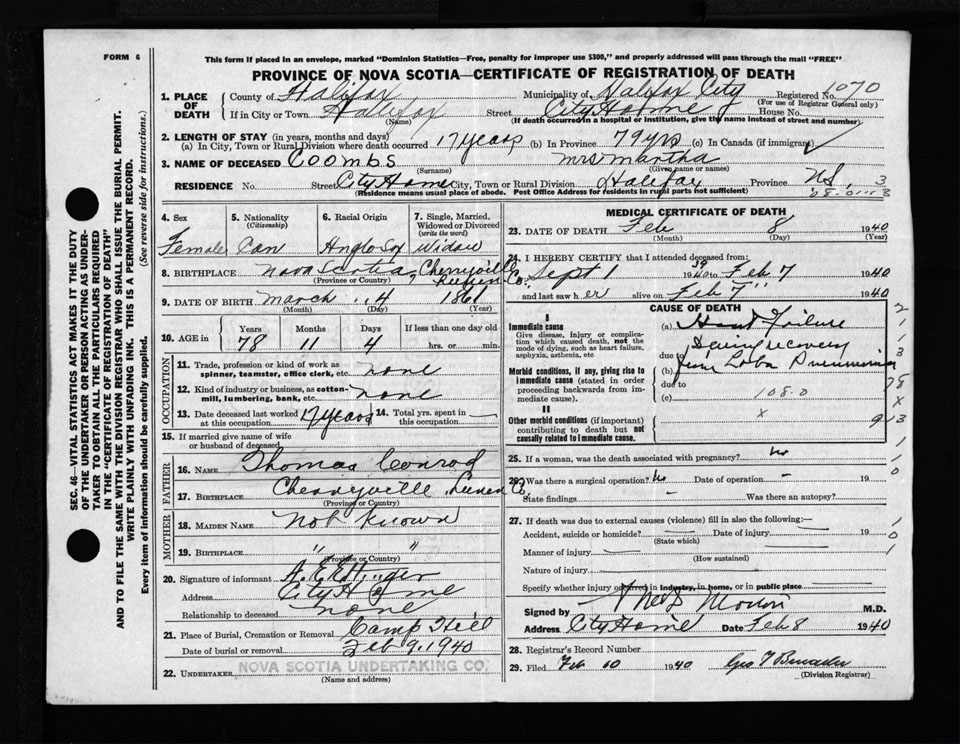 FORM 6
This form if placed in an envelope, marked "Dominion Statistics—Free, penalty for improper use $300," and properly addressed will pass through the mail "FREE"
PROVINCE OF NOVA SCOTIA—CERTIFICATE OF REGISTRATION OF DEATH
1. PLACE OF DEATH County of Halifax Municipality of Halifax City Registered No. 1070
(For use of Registrar General only)
If in City or Town Halifax (Name) Street City Home House No.
(If death occurred in a hospital or institution, give the name instead of street and number)
2. LENGTH OF STAY (in years, months and days)
(a) In City, Town or Rural Division where death occurred 17 years (b) In Province 79 yrs (c) In Canada (if immigrant)
3. NAME OF DECEASED Coombs Mrs Martha
(Surname) (Given name or names)
RESIDENCE No. Street City Home City, Town or Rural Division Halifax Province NS. 3
(Residence means usual place of abode. Post Office Address for residents in rural parts not sufficient)
4. Sex Female
5. Nationality (Citizenship) Can
6. Racial Origin Anglo Sax
7. Single, Married, Widowed or Divorced (write the word) Widow
8. BIRTHPLACE Nova Scotia, Cherryville
(Province or Country) Co.
9. DATE OF BIRTH March 4 1861
(Month) (Day) (Year)
10. AGE in Years 78 Months 11 Days 4 If less than one day hrs. or min.
OCCUPATION
11. Trade, profession or kind of work as spinner, teamster, office clerk, etc. none
12. Kind of industry or business, as cotton-mill, lumbering, bank, etc. none
13. Date deceased last worked at this occupation 17 years 14. Total yrs. spent in this occupation —
15. If married give name of wife or husband of deceased
FATHER
16. NAME Thomas Conrod
17. BIRTHPLACE Cherryville Lunen Co.
MOTHER
18. MAIDEN NAME Not Known
19. BIRTHPLACE " "
(Province or Country)
20. Signature of informant A. E. Ettinger
Address City Home
Relationship to deceased none
21. Place of Burial, Cremation or Removal Camp Hill
Date of burial or removal Feb 9, 1940
22. UNDERTAKER NOVA SCOTIA UNDERTAKING CO.
(Name and address)
MEDICAL CERTIFICATE OF DEATH
23. DATE OF DEATH Feb 8 1940
(Month) (Day) (Year)
24. I HEREBY CERTIFY that I attended deceased from:
Sept 1 1939 to Feb 7 1940
and last saw her alive on Feb 7" 1940
CAUSE OF DEATH
I
Immediate cause
Give disease, injury or complication which caused death, not the mode of dying, such as heart failure, asphyxia, asthenia, etc
(a) Heart Failure
During recovery
due to
Morbid conditions, if any, giving rise to immediate cause (stated in order proceeding backwards from immediate cause).
(b) from Lobar Pneumonia
due to
(c) 108.0
II
Other morbid conditions (if important) contributing to death but not causally related to immediate cause.
x
25. If a woman, was the death associated with pregnancy? No
26. Was there a surgical operation? No Date of operation — 19
State findings — Was there an autopsy?
27. If death was due to external causes (violence) fill in also the following:—
Accident, suicide or homicide? Date of injury 19
(State which)
Manner of injury
(How sustained)
Nature of injury
Specify whether injury occurred in industry, in home, or in public place
Signed by M.D.
Address City Home Date Feb 8 1940
28. Registrar's Record Number
29. Filed Feb 10 1940 Geo F
(Division Registrar)
SEC. 46—VITAL STATISTICS ACT MAKES IT THE DUTY OF THE UNDERTAKER OR PERSON ACTING AS UNDERTAKER TO OBTAIN ALL THE PARTICULARS REQUIRED IN THE "CERTIFICATE OF REGISTRATION OF DEATH"
AND TO FILE THE SAME WITH THE DIVISION REGISTRAR WHO SHALL ISSUE THE BURIAL PERMIT.
WRITE PLAINLY WITH UNFADING INK. THIS IS A PERMANENT RECORD.
Every item of information should be carefully supplied. (See reverse side for instructions.)